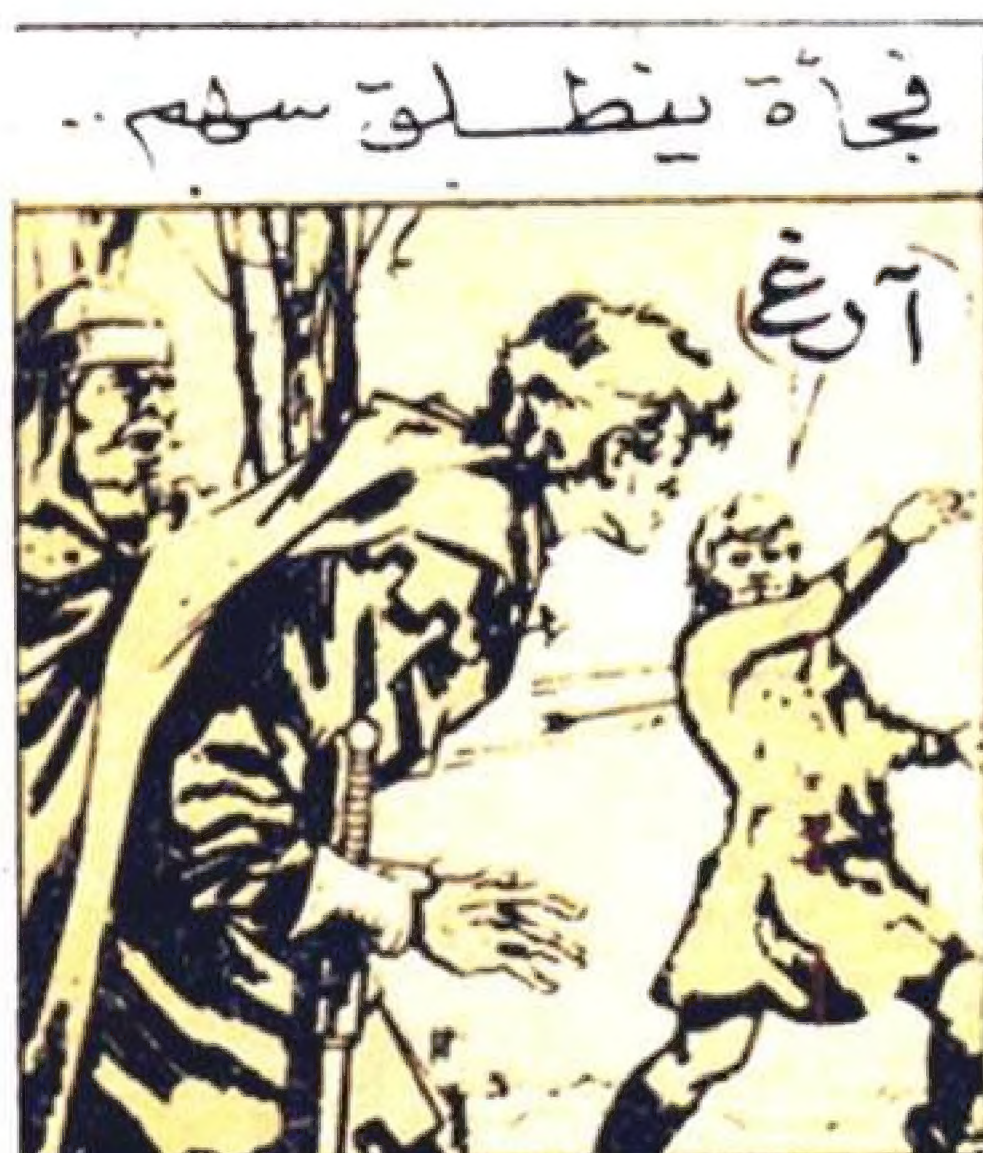 فجأة ينطلق سهم..
آرغ